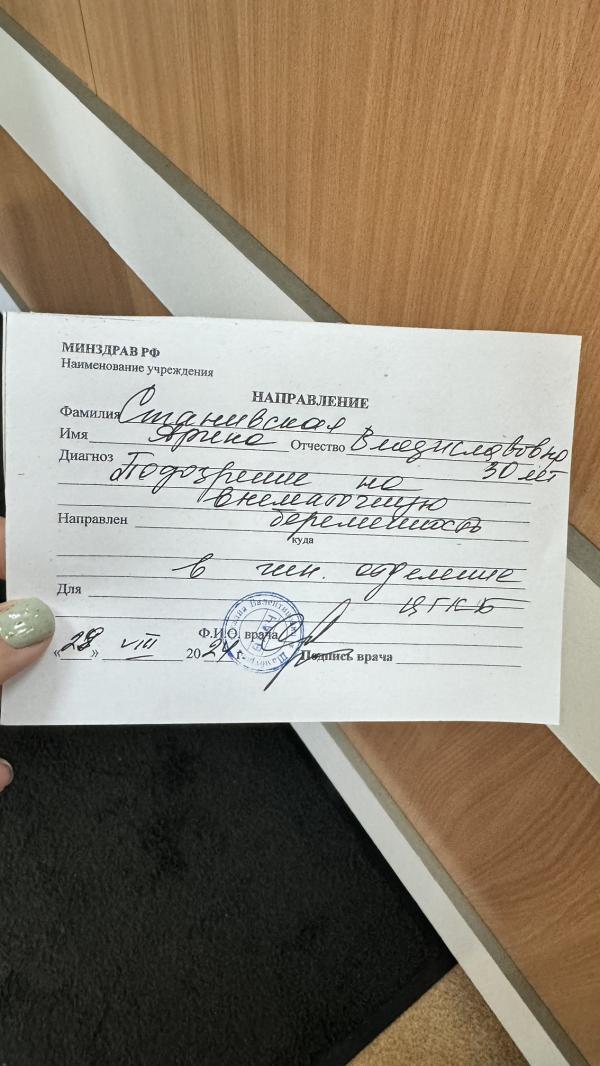 МИНЗДРАВ РФ
Наименование учреждения
НАПРАВЛЕНИЕ
Фамилия Станивская
Имя Арина Отчество Владиславовна
30 лет
Диагноз Подозрение на
внематочную
Направлен беременность
куда
в гин. отделение
Для ЦГКБ
Ф.И.О. врача
«28» VIII 2024 г. Подпись врача